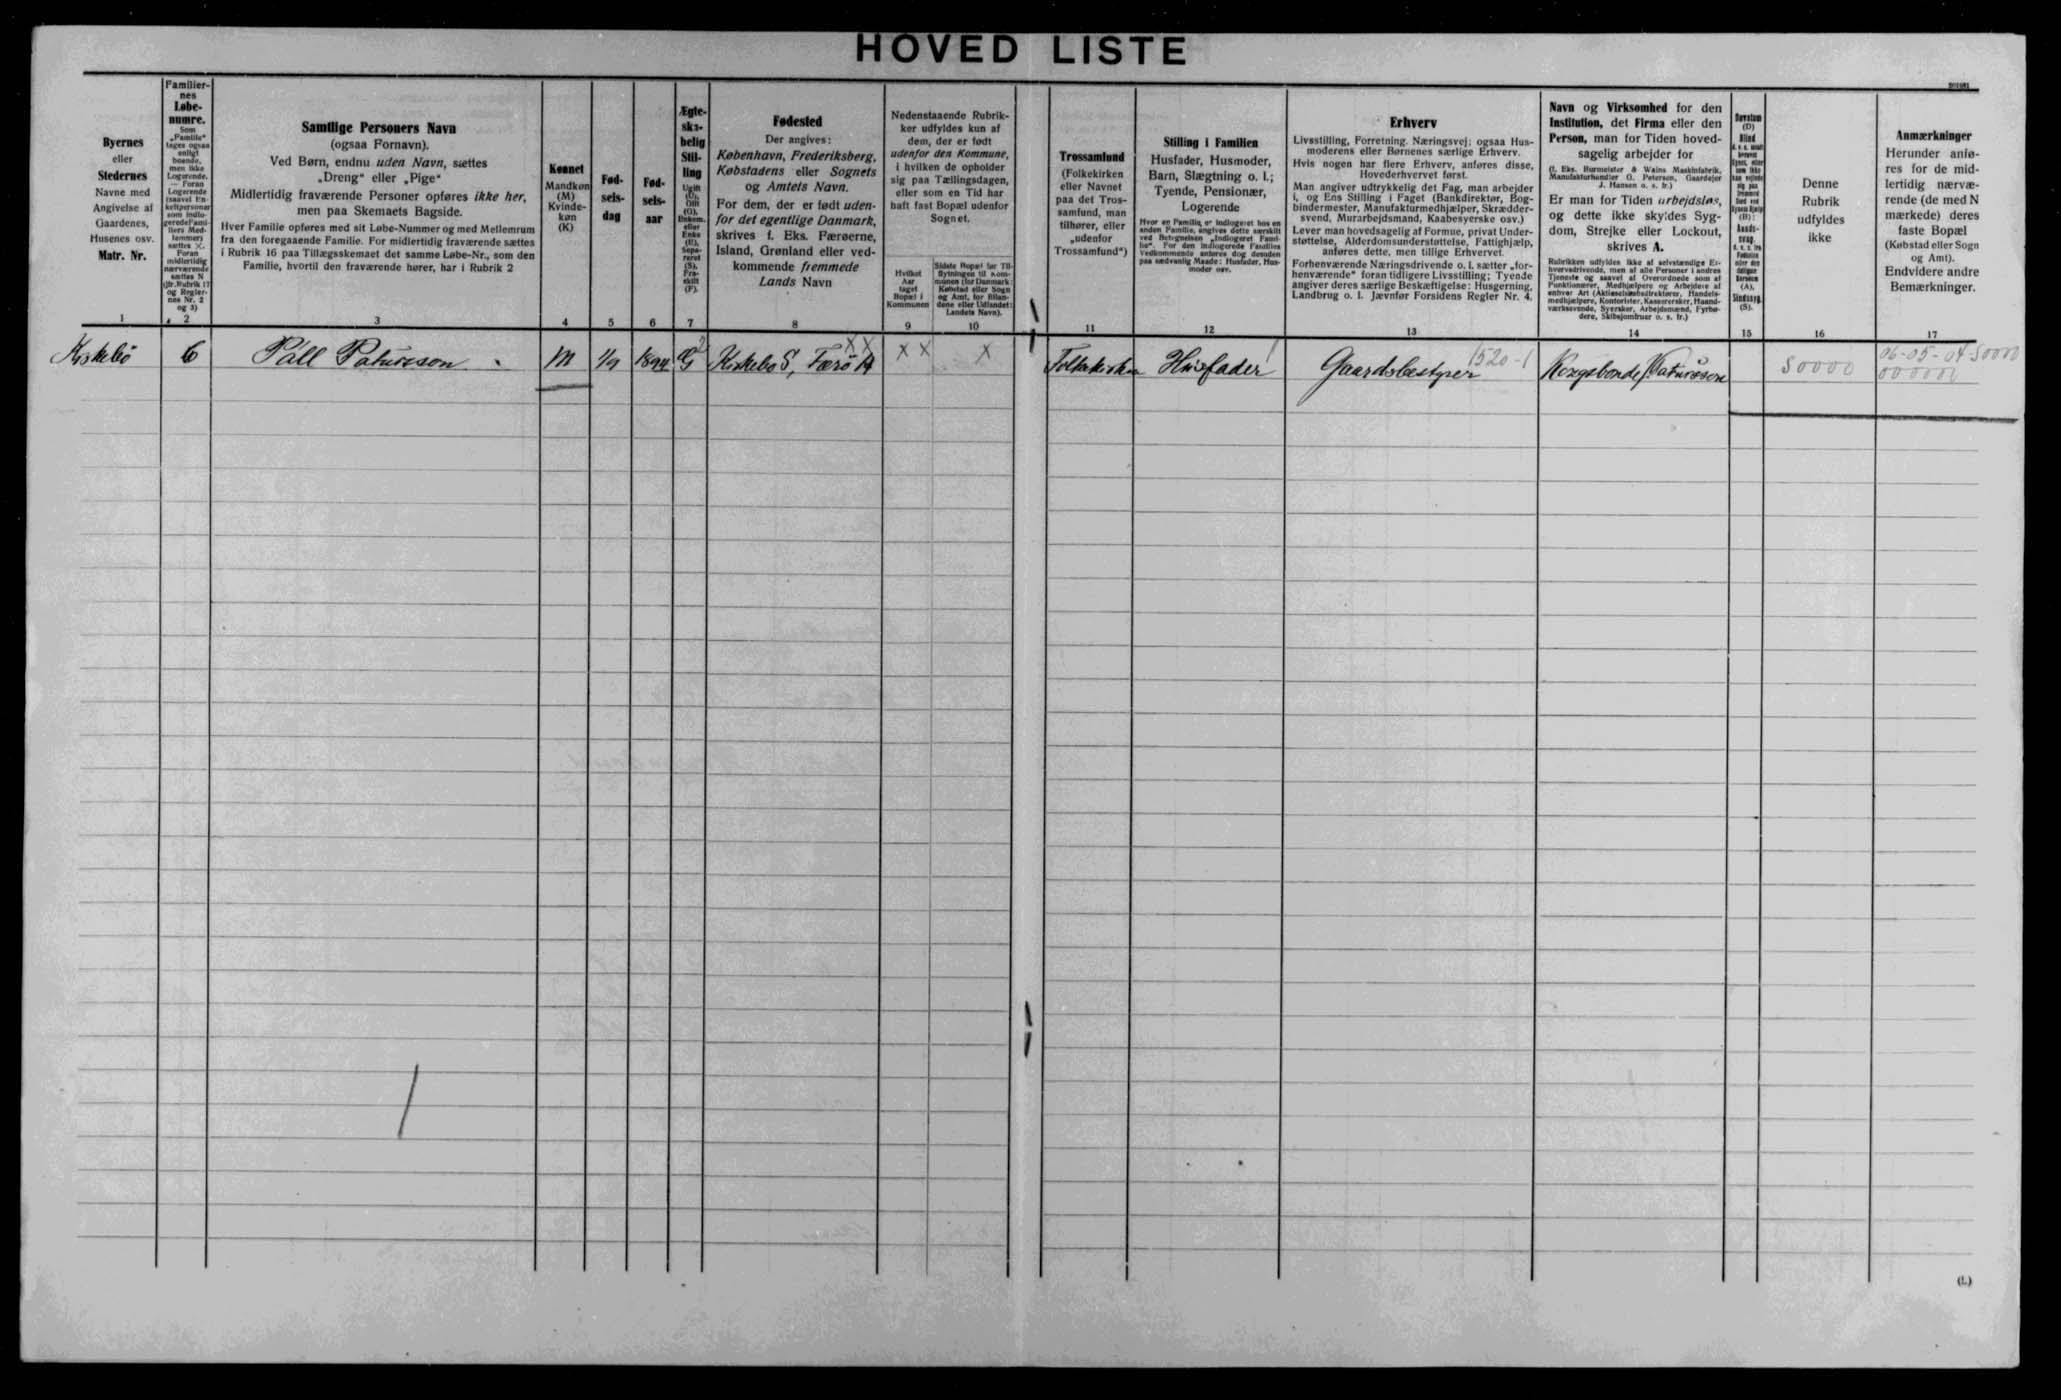 HOVED LISTE
Byernes
eller
Stedernes
Navne med
Angivelse af
Gaardenes,
Husenes osv.
Matr. Nr.
1
Familier-
nes
Løbe-
numre.
Som
„Familie“
tages ogsaa
enligt
boende,
men ikke
Logerende.
— Foran
Logerende
(saavel En-
keltpersoner
som indlo-
geredeFami-
liers Med-
lemmer)
sættes ×.
Foran
midlertidig
nærværende
sættes N
(jfr. Rubrik 17
og Regler-
nes Nr. 2
og 3)
2
Samtlige Personers Navn
(ogsaa Fornavn).
Ved Børn, endnu uden Navn, sættes
„Dreng“ eller „Pige“
Midlertidig fraværende Personer opføres ikke her,
men paa Skemaets Bagside.
Hver Familie opføres med sit Løbe-Nummer og med Mellemrum
fra den foregaaende Familie. For midlertidig fraværende sættes
i Rubrik 16 paa Tillægsskemaet det samme Løbe-Nr., som den
Familie, hvortil den fraværende hører, har i Rubrik 2
3
Kønnet
Mandkøn
(M)
Kvinde-
køn
(K)
4
Fød-
sels-
dag
5
Fød-
sels-
aar
6
Ægte-
ska-
belig
Stil-
ling
Ugift
(U),
Gift
(G),
Enkem.
eller
Enke
(E),
Sepa-
reret
(S),
Fra-
skilt
(F).
7
Fødested
Der angives:
København, Frederiksberg,
Købstadens eller Sognets
og Amtets Navn.
For dem, der er født uden-
for det egentlige Danmark,
skrives f. Eks. Færøerne,
Island, Grønland eller ved-
kommende fremmede
Lands Navn
8
Nedenstaaende Rubrik-
ker udfyldes kun af
dem, der er født
udenfor den Kommune,
i hvilken de opholder
sig paa Tællingsdagen,
eller som en Tid har
haft fast Bopæl udenfor
Sognet.
Hvilket
Aar
taget
Bopæl i
Kommunen
9
Sidste Bopæl før Til-
flytningen til Kom-
munen (for Danmark:
Købstad eller Sogn
og Amt, for Bilan-
dene eller Udlandet:
Landets Navn).
10
Trossamfund
(Folkekirken
eller Navnet
paa det Tros-
samfund, man
tilhører, eller
„udenfor
Trossamfund“)
11
Stilling i Familien
Husfader, Husmoder,
Barn, Slægtning o. l.;
Tyende, Pensionær,
Logerende
Hvor en Familie er indlogeret hos en
anden Familie, angives dette særskilt
ved Betegnelsen „Indlogeret Fami-
lie“. For den indlogerede Families
Vedkommende anføres dog desuden
paa sædvanlig Maade: Husfader, Hus-
moder osv.
12
Erhverv
Livsstilling, Forretning. Næringsvej; ogsaa Hus-
moderens eller Børnenes særlige Erhverv.
Hvis nogen har flere Erhverv, anføres disse,
Hovederhvervet først.
Man angiver udtrykkelig det Fag, man arbejder
i, og Ens Stilling i Faget (Bankdirektør, Bog-
bindermester, Manufakturmedhjælper, Skrædder-
svend, Murarbejdsmand, Kaabesyerske osv.)
Lever man hovedsagelig af Formue, privat Under-
støttelse, Alderdomsunderstøttelse, Fattighjælp,
anføres dette, men tillige Erhvervet.
Forhenværende Næringsdrivende o. l. sætter „for-
henværende“ foran tidligere Livsstilling; Tyende
angiver deres særlige Beskæftigelse: Husgerning,
Landbrug o. l. Jævnfør Forsidens Regler Nr. 4.
13
Navn og Virksomhed for den
Institution, det Firma eller den
Person, man for Tiden hoved-
sagelig arbejder for
(f. Eks. Burmeister & Wains Maskinfabrik,
Manufakturhandler O. Petersen, Gaardejer
J. Hansen o. s. fr.)
Er man for Tiden arbejdsløs,
og dette ikke skyldes Syg-
dom, Strejke eller Lockout,
skrives A.
Rubrikken udfyldes ikke af selvstændige Er-
hvervsdrivende, men af alle Personer i andres
Tjeneste og saavel af Overordnede som af
Funktionærer, Medhjælpere og Arbejdere af
enhver Art (Aktieselskabsdirektører, Handels-
medhjælpere, Kontorister, Kassererske, Haand-
værkssvende, Syersker, Arbejdsmænd, Fyrbø-
dere, Skibsjomfruer o. s. fr.)
14
Døvstum
(D)
Blind
(B);
Aands-
svag,
(A),
Sindssyg.
(S).
15
Denne
Rubrik
udfyldes
ikke
16
Anmærkninger
Herunder anfø-
res for de mid-
lertidig nærvæ-
rende (de med N
mærkede) deres
faste Bopæl
(Købstad eller Sogn
og Amt).
Endvidere andre
Bemærkninger.
17
Kirkebö 6 Páll Patursson M 1/9 1894 G 2 Kirkebö S, Færö A XX X X X Folkekirken Husfader 1 Gaardsbestyrer 1520-1 Kongsbonde J. Patursson 50000 06-05-04-50000
000000
(L)